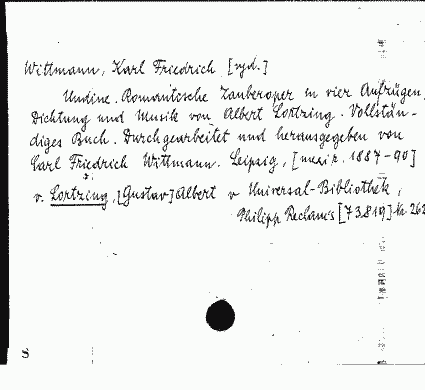 Wittmann, Karl Friedrich [vyd.]
Undine. Romantische Zauberoper in vier Aufzügen,
Dichtung und Musik von Albert Lortzing. Vollstän-
diges Buch. Durchgearbeitet und herausgegeben von
Carl Friedrich Wittmann. Leipzig, [mezi r. 1887-90]
v. Lortzing, [Gustav] Albert v Universal-Bibliothek,
Philipp Reclam's [73.819] Nr 262
S